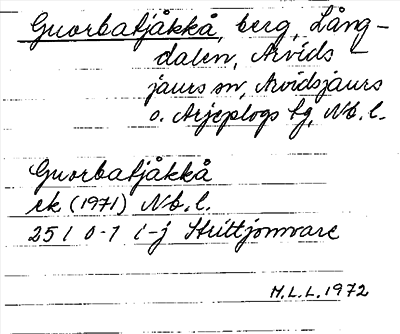 Guorbatjåkkå, berg, Lång-
dalen, Arvids
jaurs sn, Arvidsjaurs
o. Arjeplogs tg, Nb. l.
Guorbatjåkkå
ek (1971) Nb. l.
25 I 0-1 i-j Strittjomvare
H.L.L. 1972